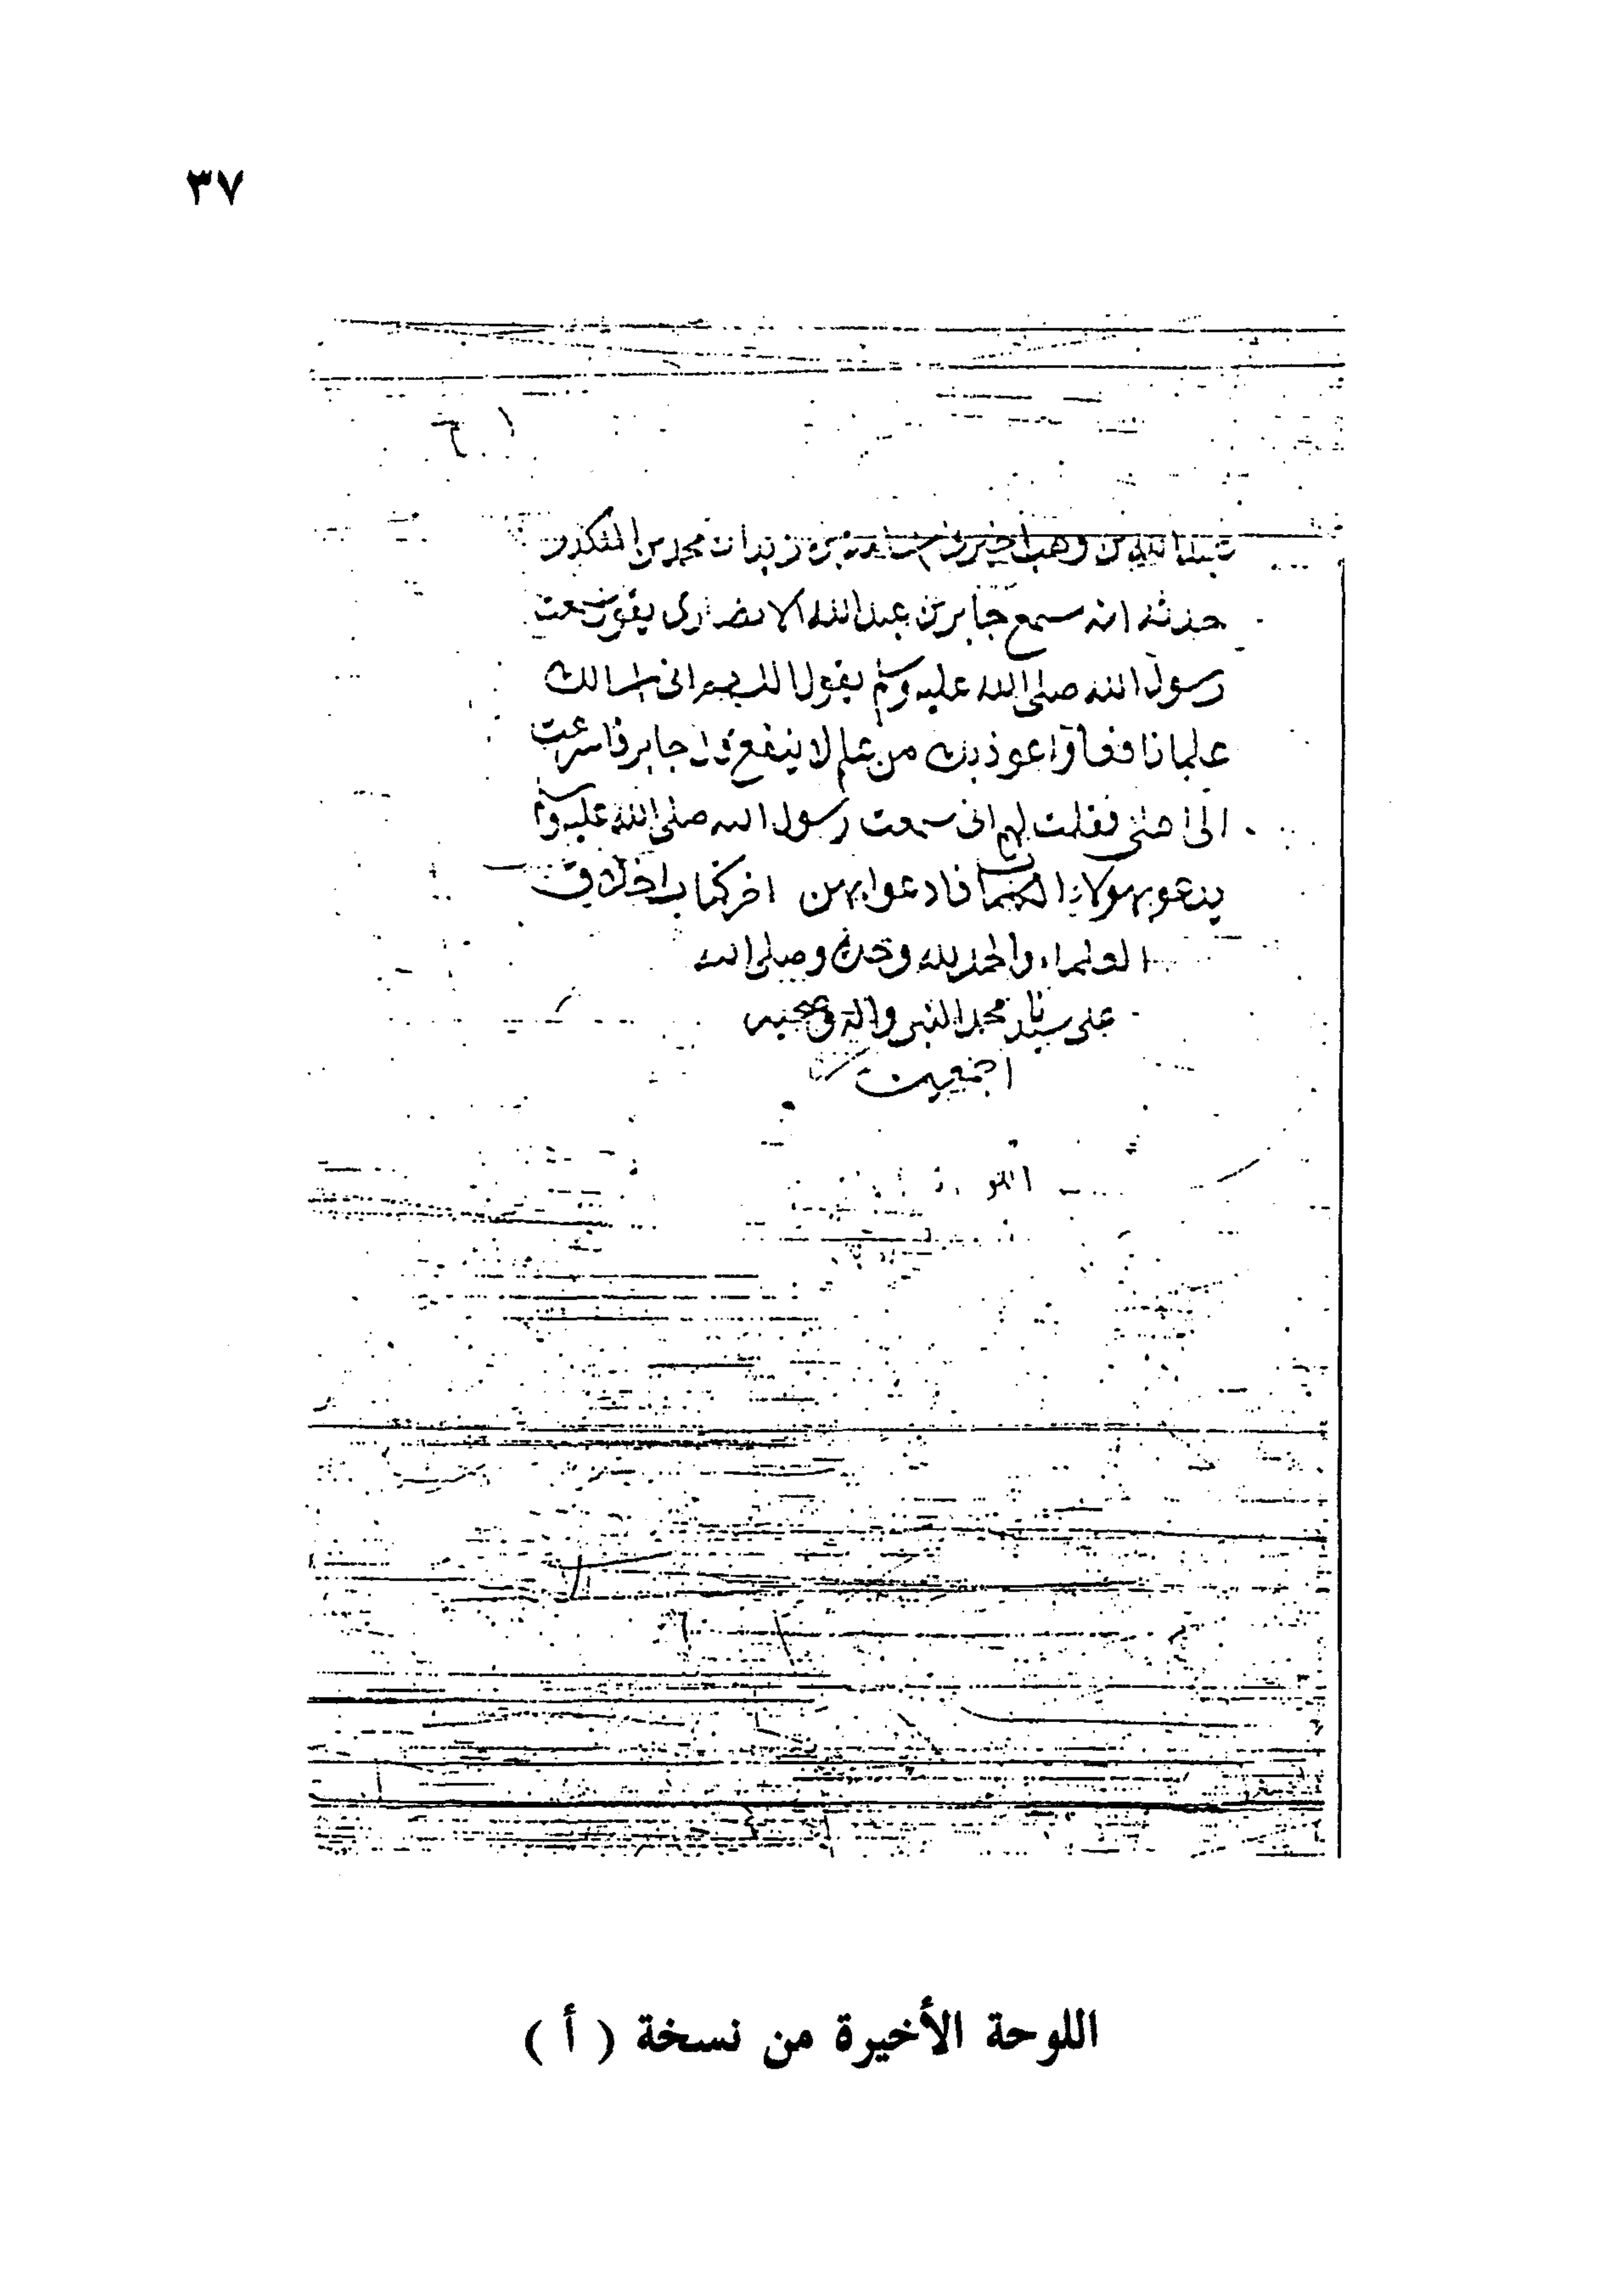 ٣٧
عبد الله بن وهب اخبرنى اسامة بن زيد ان محمد بن المنكدر
حدثه انه سمع جابر بن عبد الله الانصارى يقول سمعت
رسول الله صلى الله عليه وسلم يقول اللهم انى اسالك
علما نافعا واعوذ بك من علم لا ينفع قال جابر فاسرعت
الى اهلى فقلت لهم انى سمعت رسول الله صلى الله عليه وسلم
يدعو بهولاء الكلمات فادعوا بهن اخر كتاب اخلاق
العلماء والحمد لله وحده وصلى الله
على سيدنا محمد النبى واله وصحبه
اجمعين
اللوحة الأخيرة من نسخة ( أ )